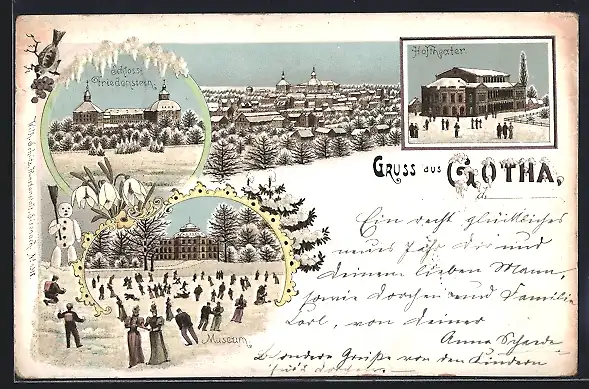 Schloss
Friedenstein.
Hoftheater
Gruss aus Gotha,
Museum.
Ein recht glückliches
neues Jahr Dir und
deinem lieben Mann,
sowie Dorchen und Familie
Carl, von deiner
Anna
Besondere Grüße von den Kindern